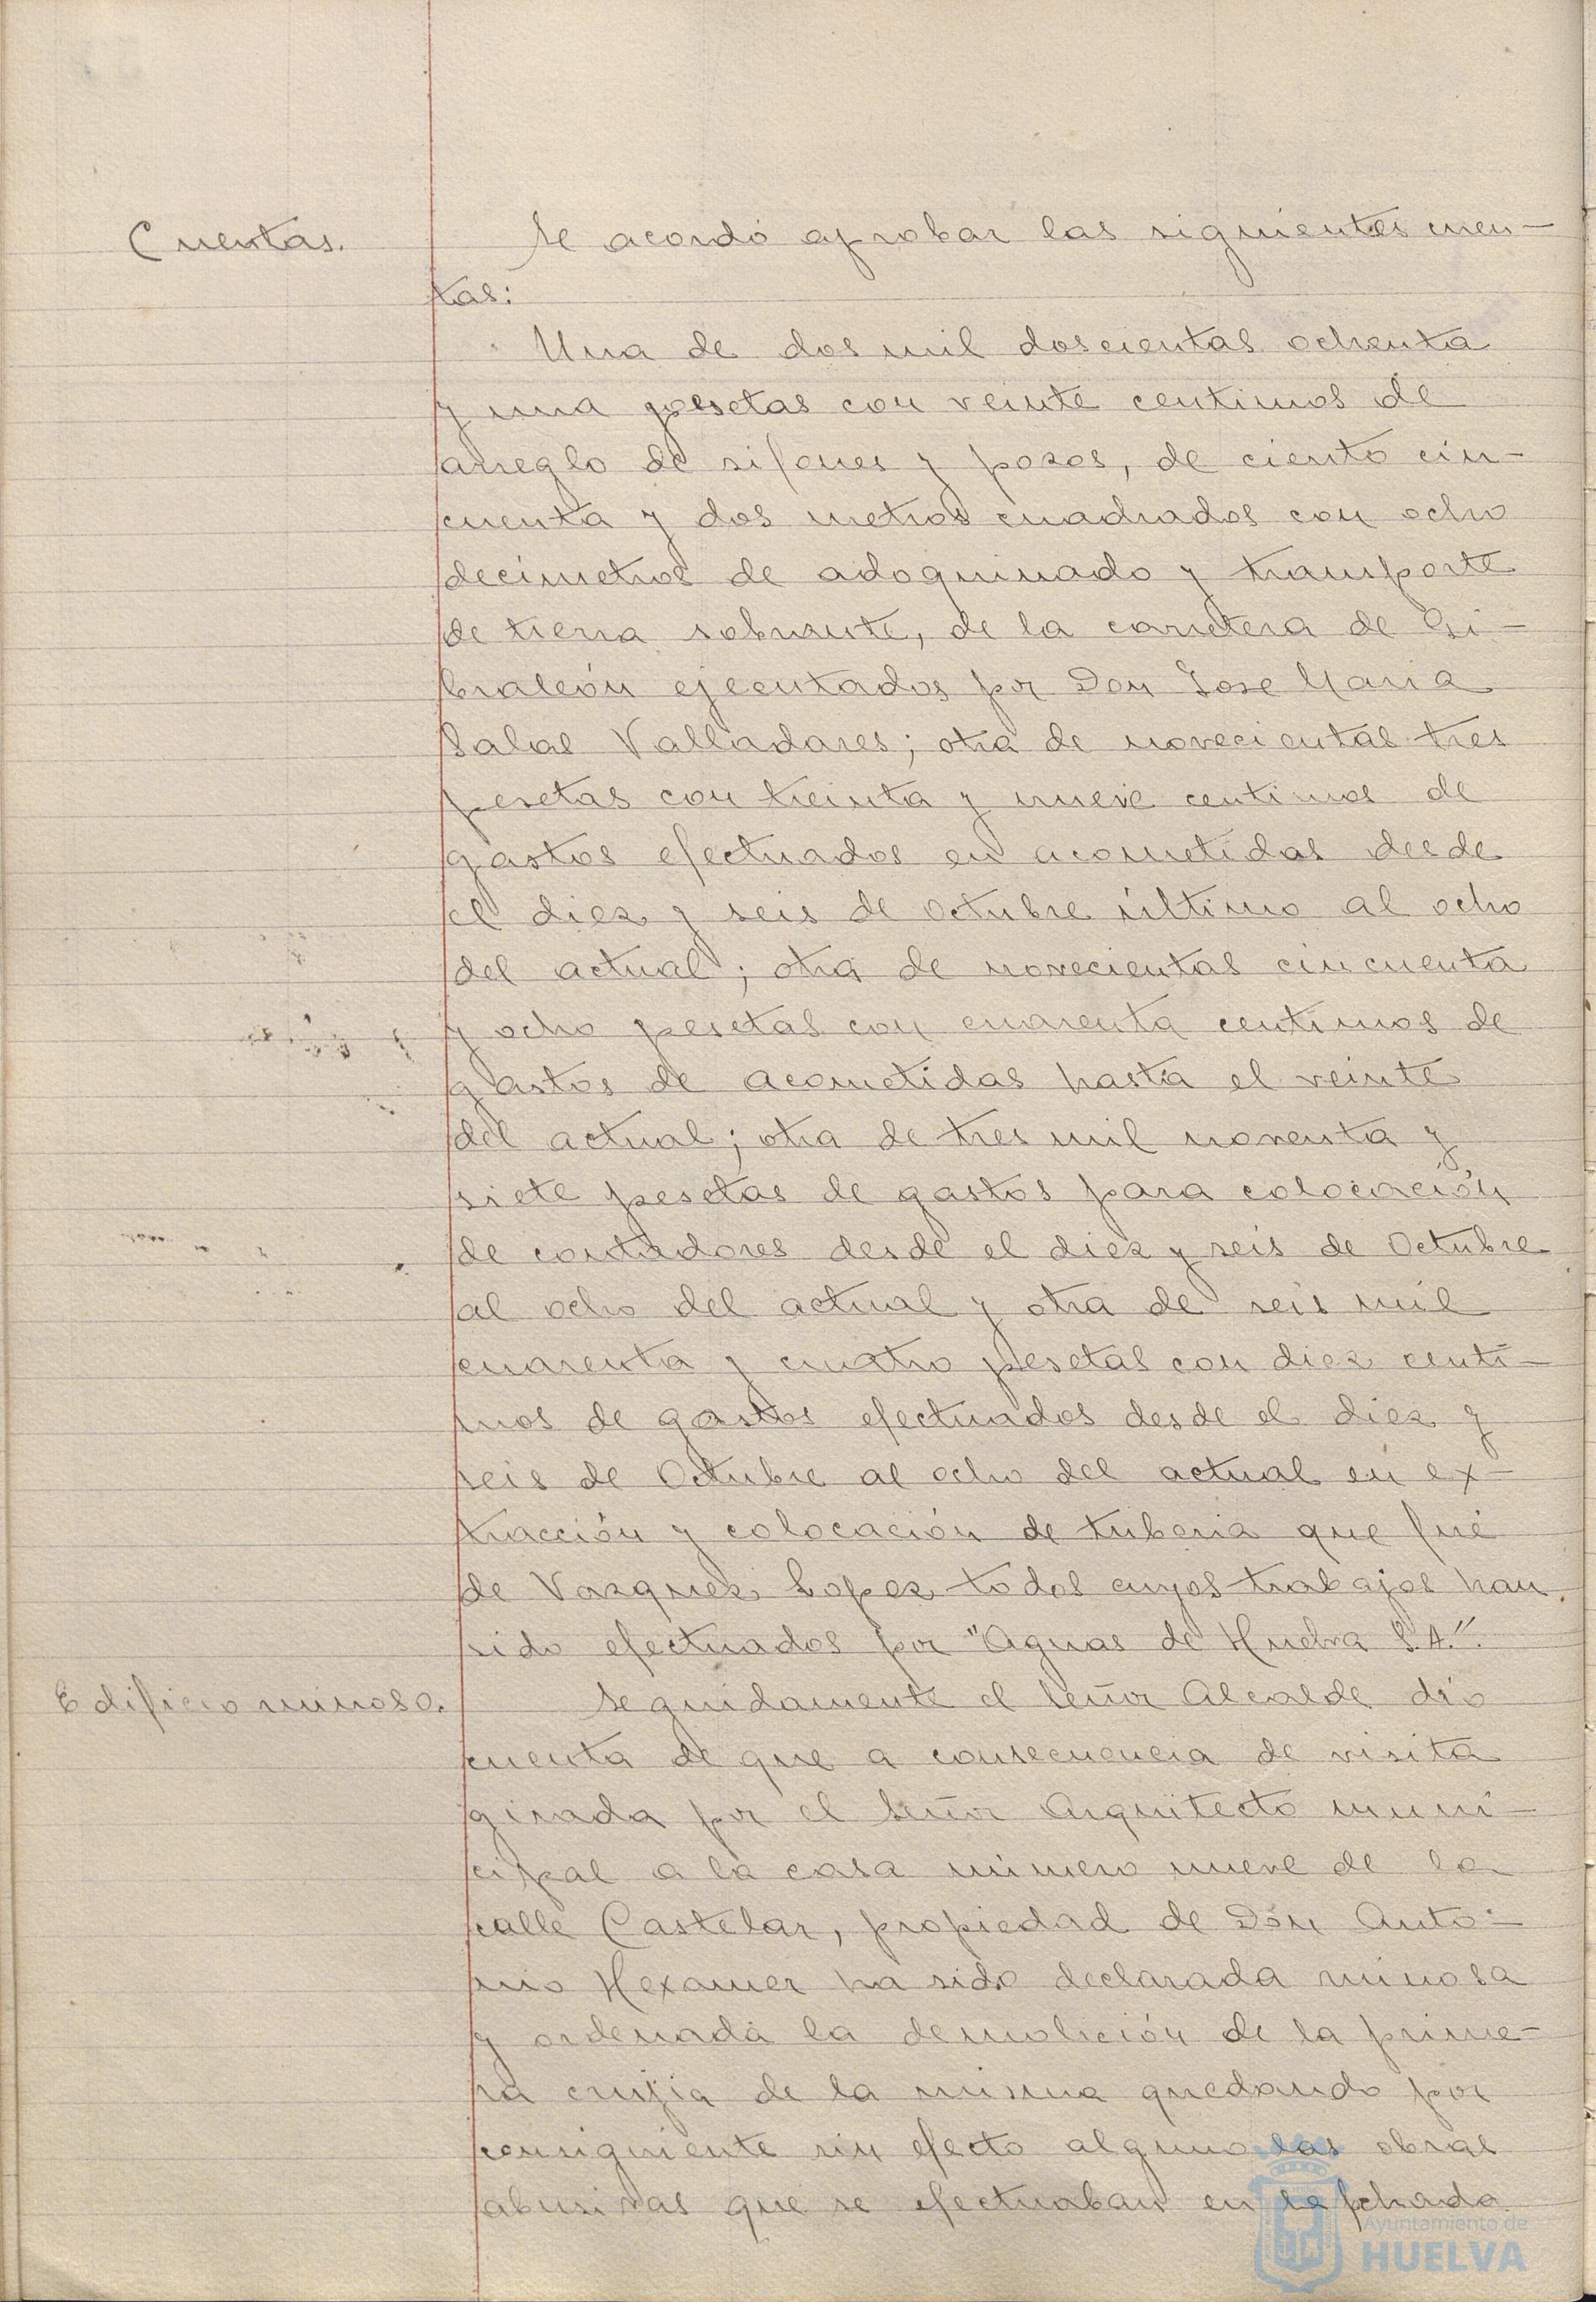 Cuentas.
Se acordó aprobar las siguientes cuen-
tas:
Una de dos mil doscientas ochenta
y una pesetas con veinte centimos de
arreglo de sifones y pozos, de ciento cin-
cuenta y dos metros cuadrados con ocho
decímetros de adoquinado y transporte
de tierra sobrante, de la carretera de Gi-
braleón ejecutados por Don Jose Maria
Salas Valladares; otra de novecientas tres
pesetas con treinta y nueve centimos de
gastos efectuados en acometidas desde
el diez y seis de Octubre último al ocho
del actual; otra de novecientas cincuenta
y ocho pesetas con cuarenta centimos de
gastos de acometidas hasta el veinte
del actual; otra de tres mil noventa y
siete pesetas de gastos para colocación
de contadores desde el diez y seis de Octubre
al ocho del actual y otra de seis mil
cuarenta y cuatro pesetas con diez centi-
mos de gastos efectuados desde el diez y
seis de Octubre al ocho del actual en ex-
tracción y colocación de tuberia que fué
de Vazquez Lopez todos cuyos trabajos han
sido efectuados por "Aguas de Huelva S.A."
Edificio ruinoso.
Seguidamente el Señor Alcalde dió
cuenta de que a consecuencia de visita
girada por el Señor Arquitecto muni-
cipal a la casa número nueve de la
calle Castelar, propiedad de Don Anto-
nio Hexamer ha sido declarada ruinosa
y ordenada la demolición de la prime-
ra crujia de la misma quedando por
consiguiente sin efecto alguno las obras
abusivas que se efectuaban en la fchada
Ayuntamiento de
HUELVA